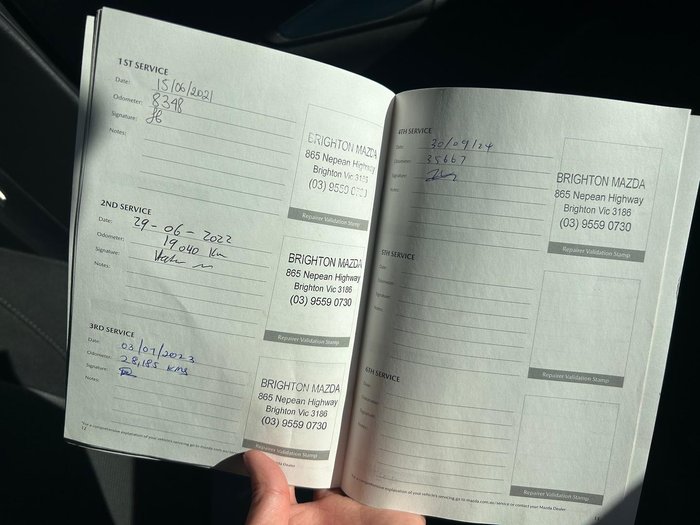 1ST SERVICE
Date: 15/06/2021
Odometer: 8348
Signature:
Notes:
BRIGHTON MAZDA
865 Nepean Highway
Brighton Vic 3186
(03) 9559 0730
Repairer Validation Stamp
2ND SERVICE
Date: 29-06-2022
Odometer: 19040 Km
Signature:
Notes:
BRIGHTON MAZDA
865 Nepean Highway
Brighton Vic 3186
(03) 9559 0730
Repairer Validation Stamp
3RD SERVICE
Date: 03/07/2023
Odometer: 28,185 KMS
Signature:
Notes:
BRIGHTON MAZDA
865 Nepean Highway
Brighton Vic 3186
(03) 9559 0730
Repairer Validation Stamp
comprehensive explanation of your vehicle's servicing go to mazda.com.au/service Mazda Dealer
12
4TH SERVICE
Date: 30/09/24
Odometer: 35667
Signature:
Notes:
BRIGHTON MAZDA
865 Nepean Highway
Brighton Vic 3186
(03) 9559 0730
Repairer Validation Stamp
5TH SERVICE
Date:
Odometer:
Signature:
Notes:
Repairer Validation Stamp
6TH SERVICE
Date:
Odometer:
Signature:
Notes:
Repairer Validation Stamp
comprehensive explanation of your vehicle's servicing go to mazda.com.au/service or contact your Mazda Dealer